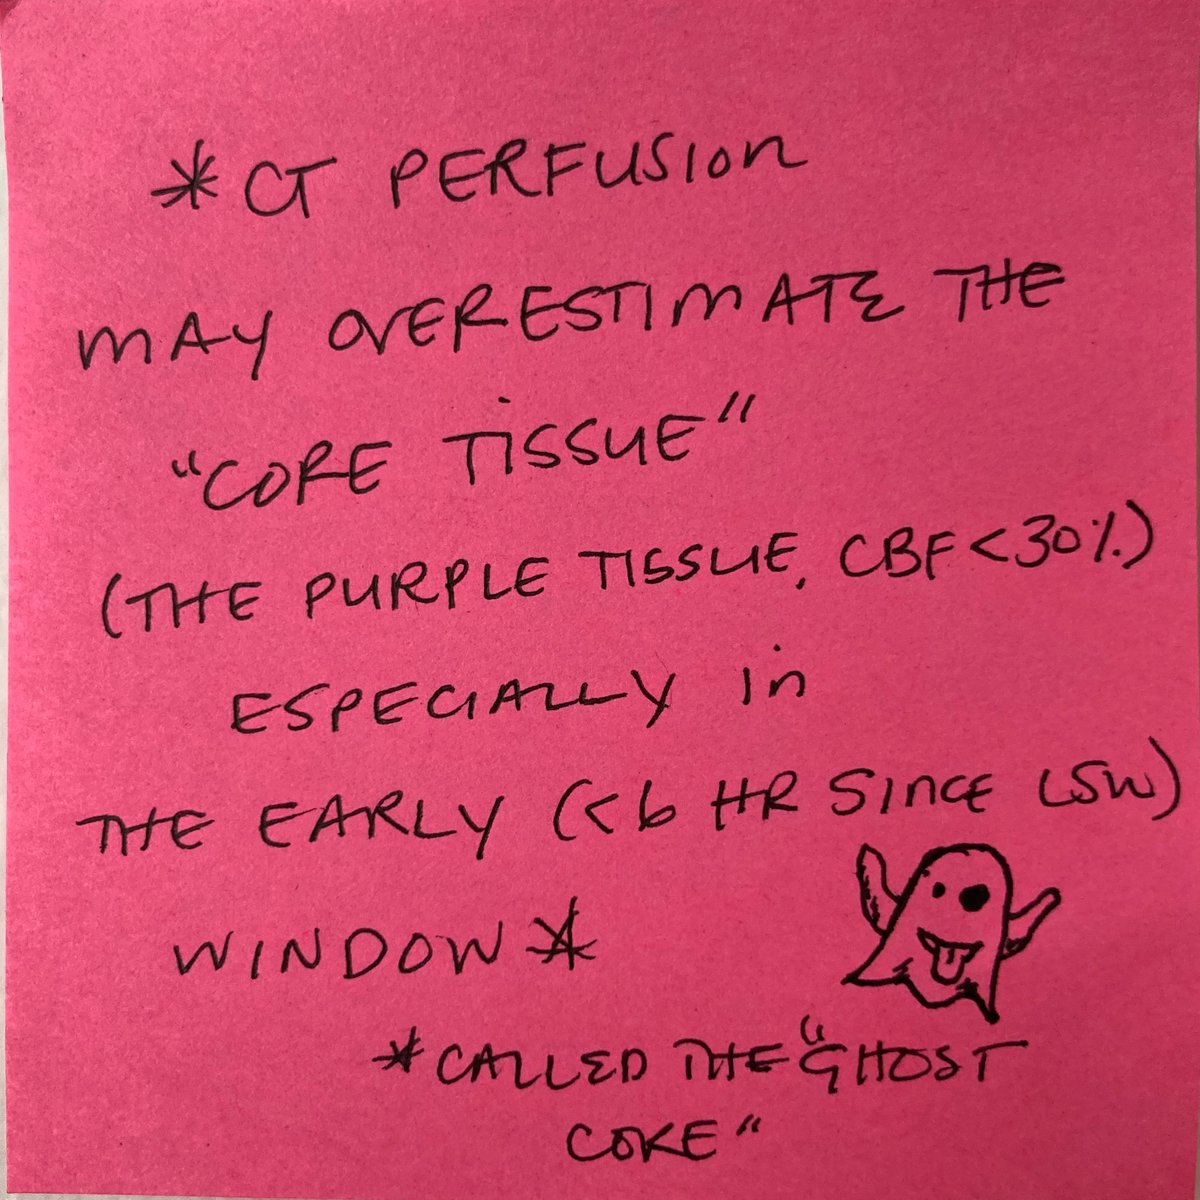 *CT PERFUSION
MAY OVERESTIMATE THE
"CORE TISSUE"
(THE PURPLE TISSUE, CBF<30%)
ESPECIALLY in
THE EARLY (<6 HR SINCE LSW)
WINDOW*
*CALLED THE "GHOST
CORE"